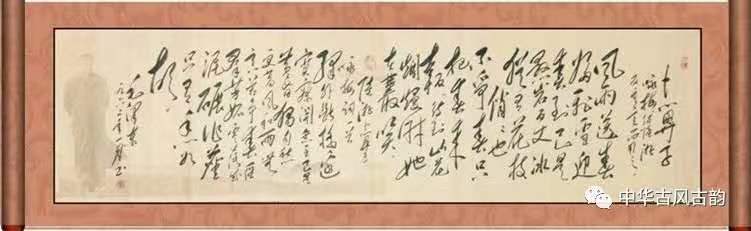 卜算子
咏梅
风雨送春
归飞雪迎
春到已是
悬岩百丈冰
犹有花枝
俏俏也
不争春只
把春来
报待到山花
烂熳时她
在丛中笑
陆游卜算子
咏梅词一首
驿外断桥边
寂寞开无主已是
黄昏独自愁
更著风和雨无
意苦争春一任
群芳妒零落成
泥碾作尘
只有香如
故
毛泽东
一九六二年
中华古风古韵